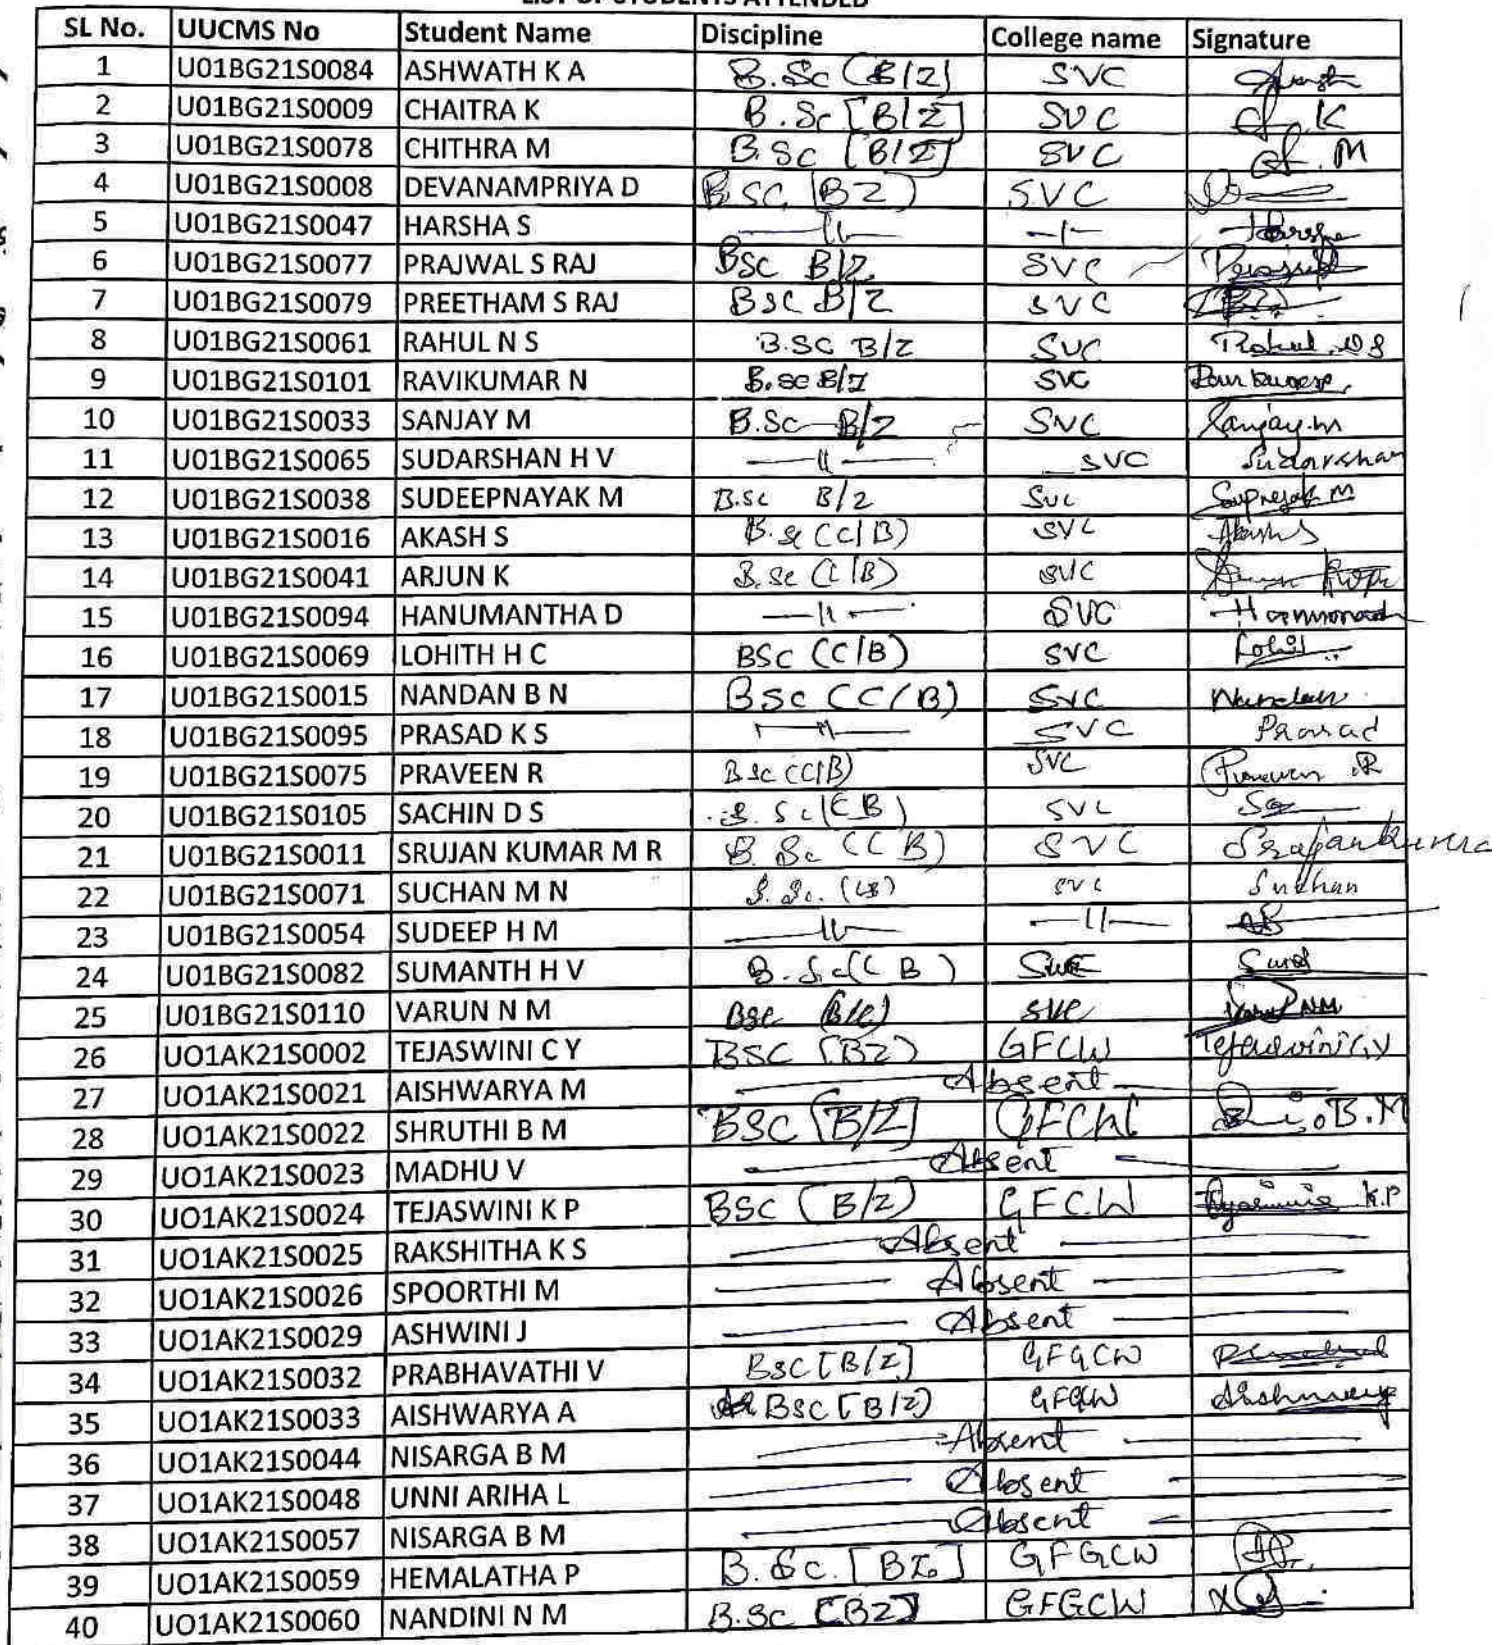 LIST OF STUDENTS ATTENDED
SL No. UUCMS No Student Name Discipline College name Signature
1 U01BG21S0084 ASHWATH K A B.Sc (B/Z) SVC
2 U01BG21S0009 CHAITRA K B.Sc [B/Z] SVC K
3 U01BG21S0078 CHITHRA M B.Sc [B/Z] SVC M
4 U01BG21S0008 DEVANAMPRIYA D B.SC (BZ) SVC
5 U01BG21S0047 HARSHA S —11— —1— Harsha
6 U01BG21S0077 PRAJWAL S RAJ BSC B/Z SVC
7 U01BG21S0079 PREETHAM S RAJ BSC B/Z SVC
8 U01BG21S0061 RAHUL N S B.SC B/Z SVC Rahul.N S
9 U01BG21S0101 RAVIKUMAR N B.Sc B/Z SVC
10 U01BG21S0033 SANJAY M B.Sc B/Z SVC Sanjay.m
11 U01BG21S0065 SUDARSHAN H V —11— SVC Sudarshan
12 U01BG21S0038 SUDEEPNAYAK M B.sc B/Z SVC
13 U01BG21S0016 AKASH S B.Sc (C/B) SVC Akash S
14 U01BG21S0041 ARJUN K B.Sc (C/B) SVC
15 U01BG21S0094 HANUMANTHA D —11— SVC
16 U01BG21S0069 LOHITH H C BSC (C/B) SVC
17 U01BG21S0015 NANDAN B N BSC (C/B) SVC Nandan
18 U01BG21S0095 PRASAD K S —11— SVC Prasad
19 U01BG21S0075 PRAVEEN R BSC (C/B) SVC Praveen R
20 U01BG21S0105 SACHIN D S B.Sc (CB) SVC
21 U01BG21S0011 SRUJAN KUMAR M R B.Sc (CB) SVC
22 U01BG21S0071 SUCHAN M N B.Sc. (CB) SVC Suchan
23 U01BG21S0054 SUDEEP H M —11— —11—
24 U01BG21S0082 SUMANTH H V B.Sc (CB) SVC
25 U01BG21S0110 VARUN N M BSC (B/C) SVC Varun NM
26 UO1AK21S0002 TEJASWINI C Y BSC (BZ) GFCW Tejaswini C.Y
27 UO1AK21S0021 AISHWARYA M Absent
28 UO1AK21S0022 SHRUTHI B M BSC [B/Z] GFCW B.M
29 UO1AK21S0023 MADHU V Absent
30 UO1AK21S0024 TEJASWINI K P BSC (B/Z) GFCW K.P
31 UO1AK21S0025 RAKSHITHA K S Absent
32 UO1AK21S0026 SPOORTHI M Absent
33 UO1AK21S0029 ASHWINI J Absent
34 UO1AK21S0032 PRABHAVATHI V BSC [B/Z] GFGCW
35 UO1AK21S0033 AISHWARYA A BSC [B/Z) GFGCW
36 UO1AK21S0044 NISARGA B M Absent
37 UO1AK21S0048 UNNI ARIHA L Absent
38 UO1AK21S0057 NISARGA B M Absent
39 UO1AK21S0059 HEMALATHA P B.Sc. [BZ] GFGCW
40 UO1AK21S0060 NANDINI N M B.SC [BZ] GFGCW